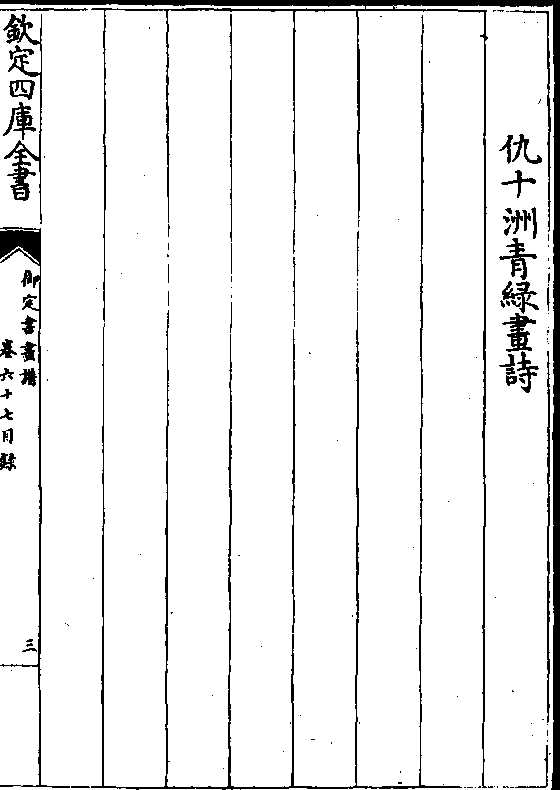 仇十洲青緑畫詩
欽定四庫全書
御定書畫譜
卷六十七目錄
三